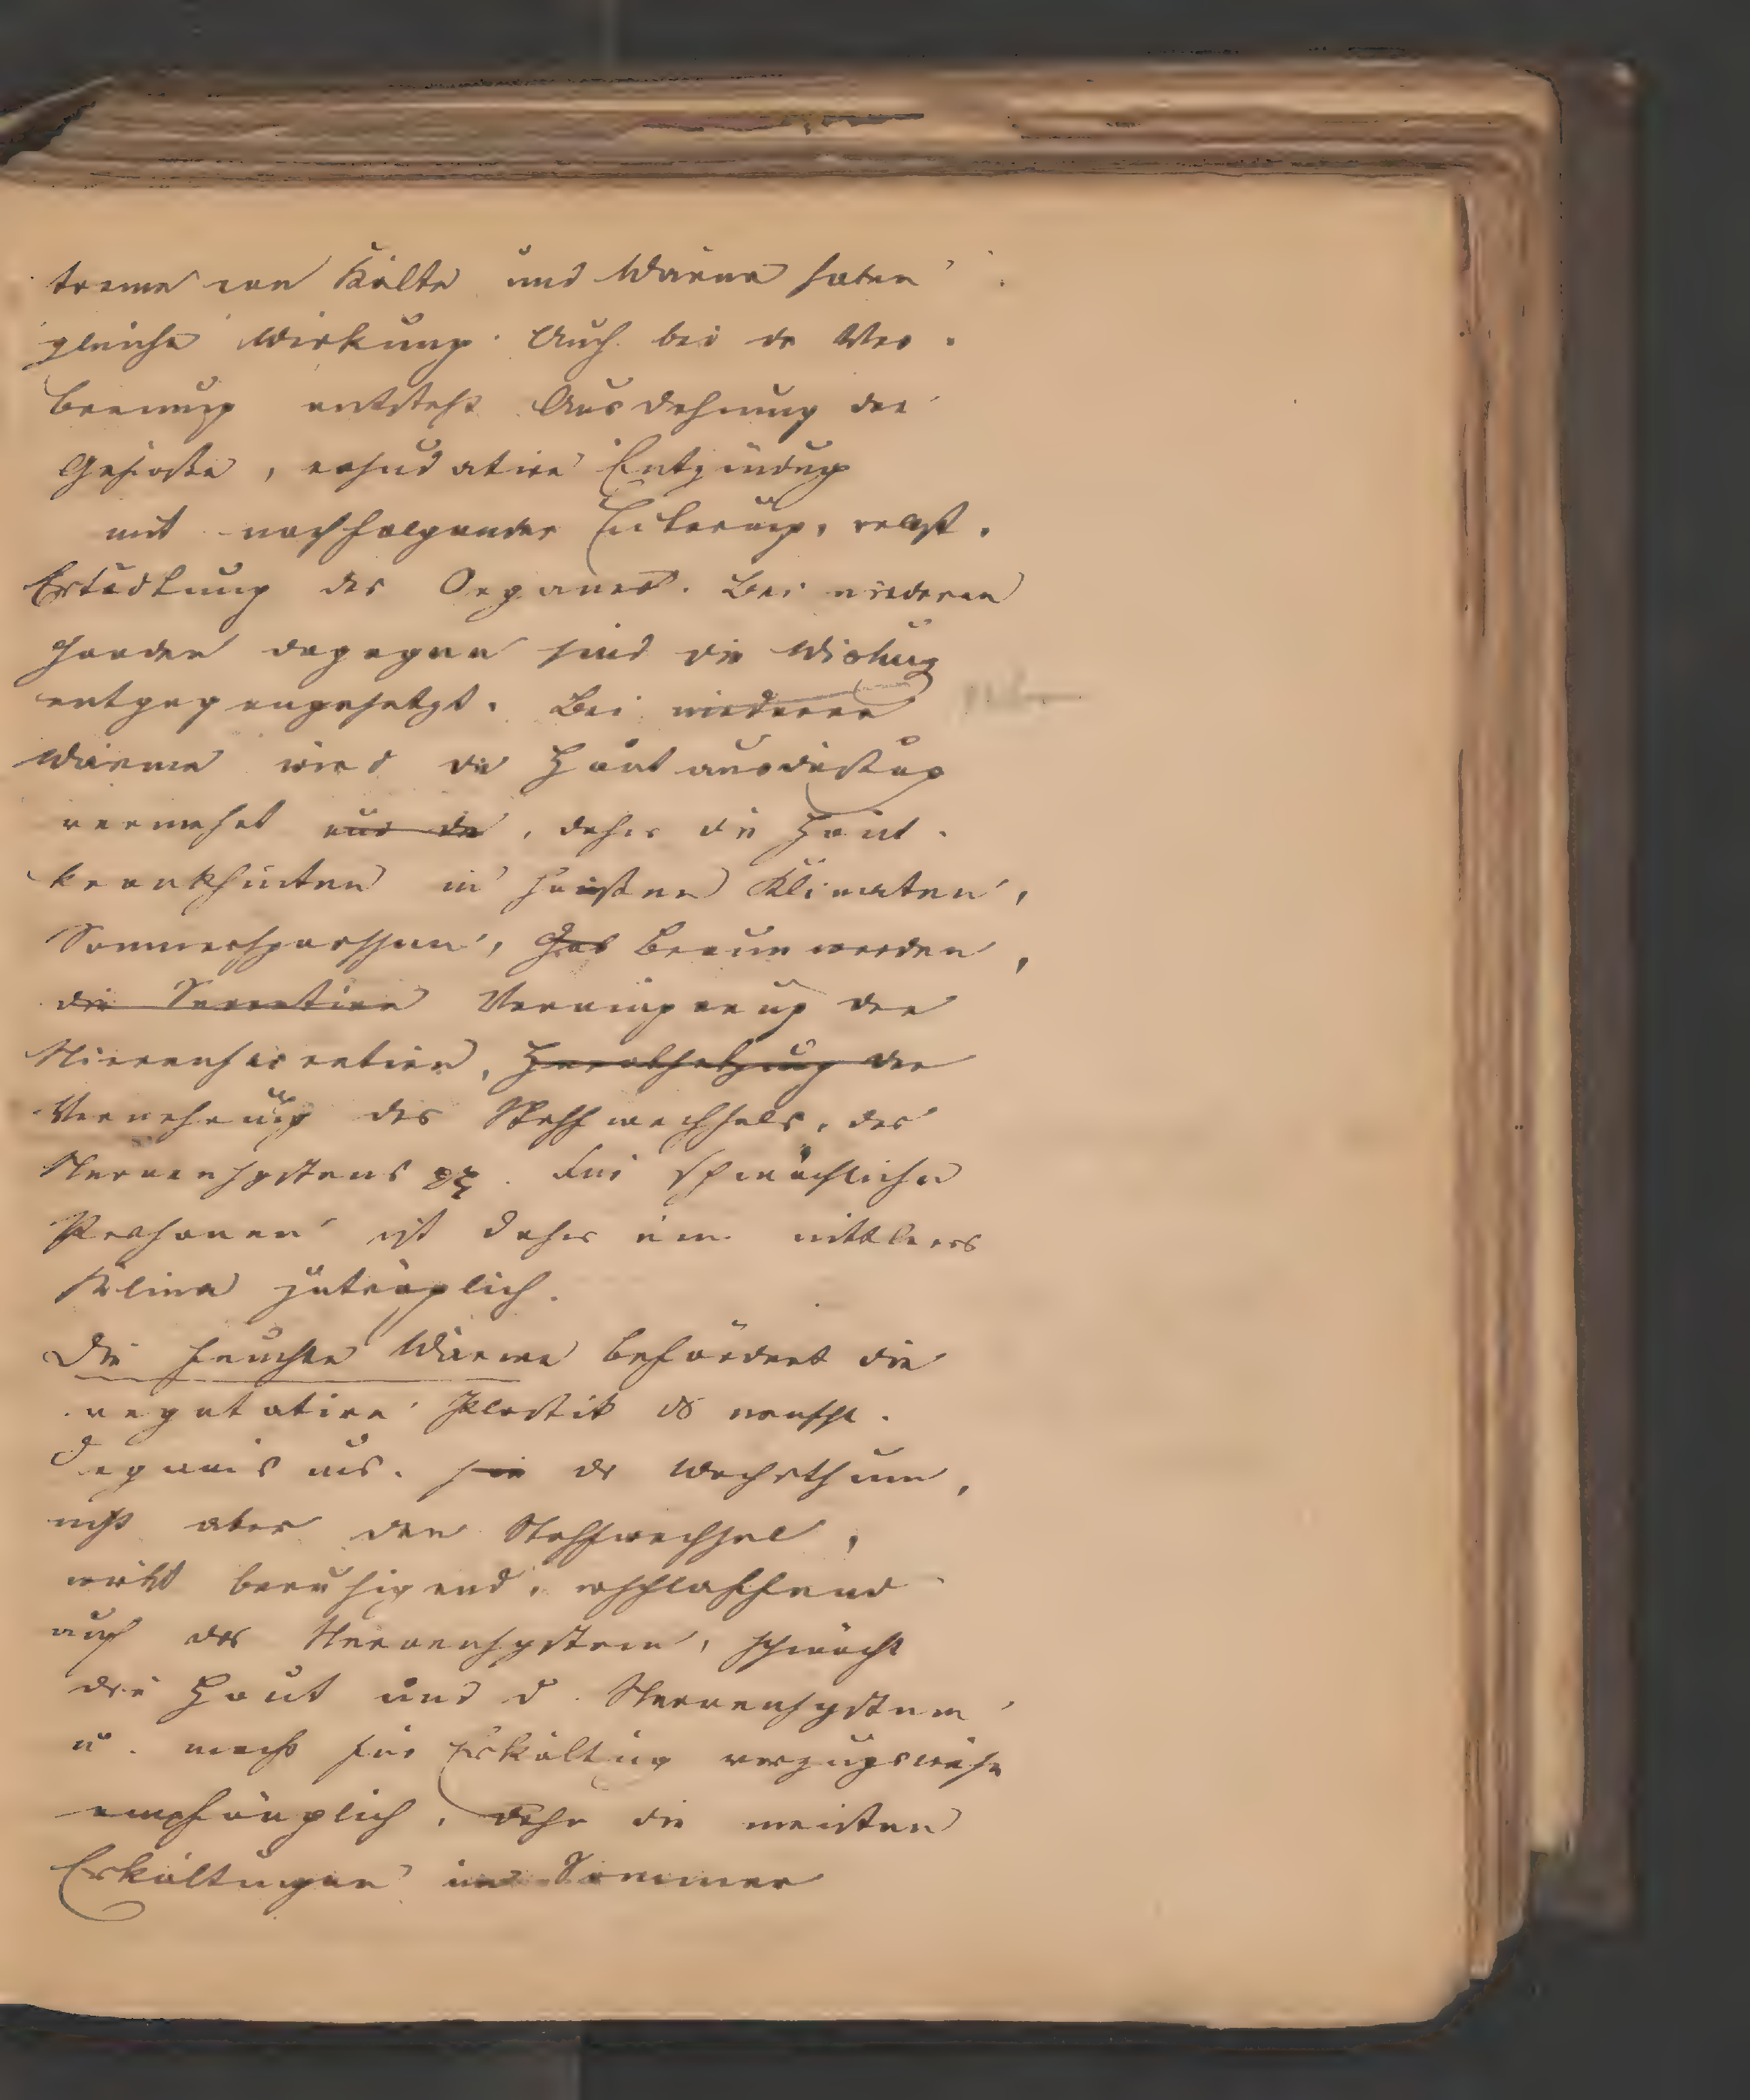 treme von Kälte und Wärme haben
gleiche Wirkung. Auch bei der Ver-
brennung entsteht Ausdehnung der
Gefäße, exsudative Entzündung
mit nachfolgender Eiterung, selbst
Ertödtung des Organes. Bei niederen
Graden dagegen sind die Wirkung
entgegengesetzt. Bei niederer
Wärme wird die Hautausdünstung
vermehrt und die, daher die Haut-
krankheiten in heißen Klimaten,
Sommersprossen, Braunwerden,
die Secretion Verringerung der
Nierensecretion, Herabsetzung der
Vermehrung des Stoffwechsels, des
Nervensystems Für schwächliche
Personen ist daher ein mittleres
Klima zuträglich.
Die feuchte Wärme befördert die
vegetative Plastik des
das Wachsthum,
nicht aber den Stoffwechsel,
wirkt beruhigend, erschlaffend
auf das Nervensystem, schwächt
die Haut und d. Nervensystem
u. macht für Erkältung vorzugsweise
empfänglich, daher die meisten
Erkältungen im Sommer